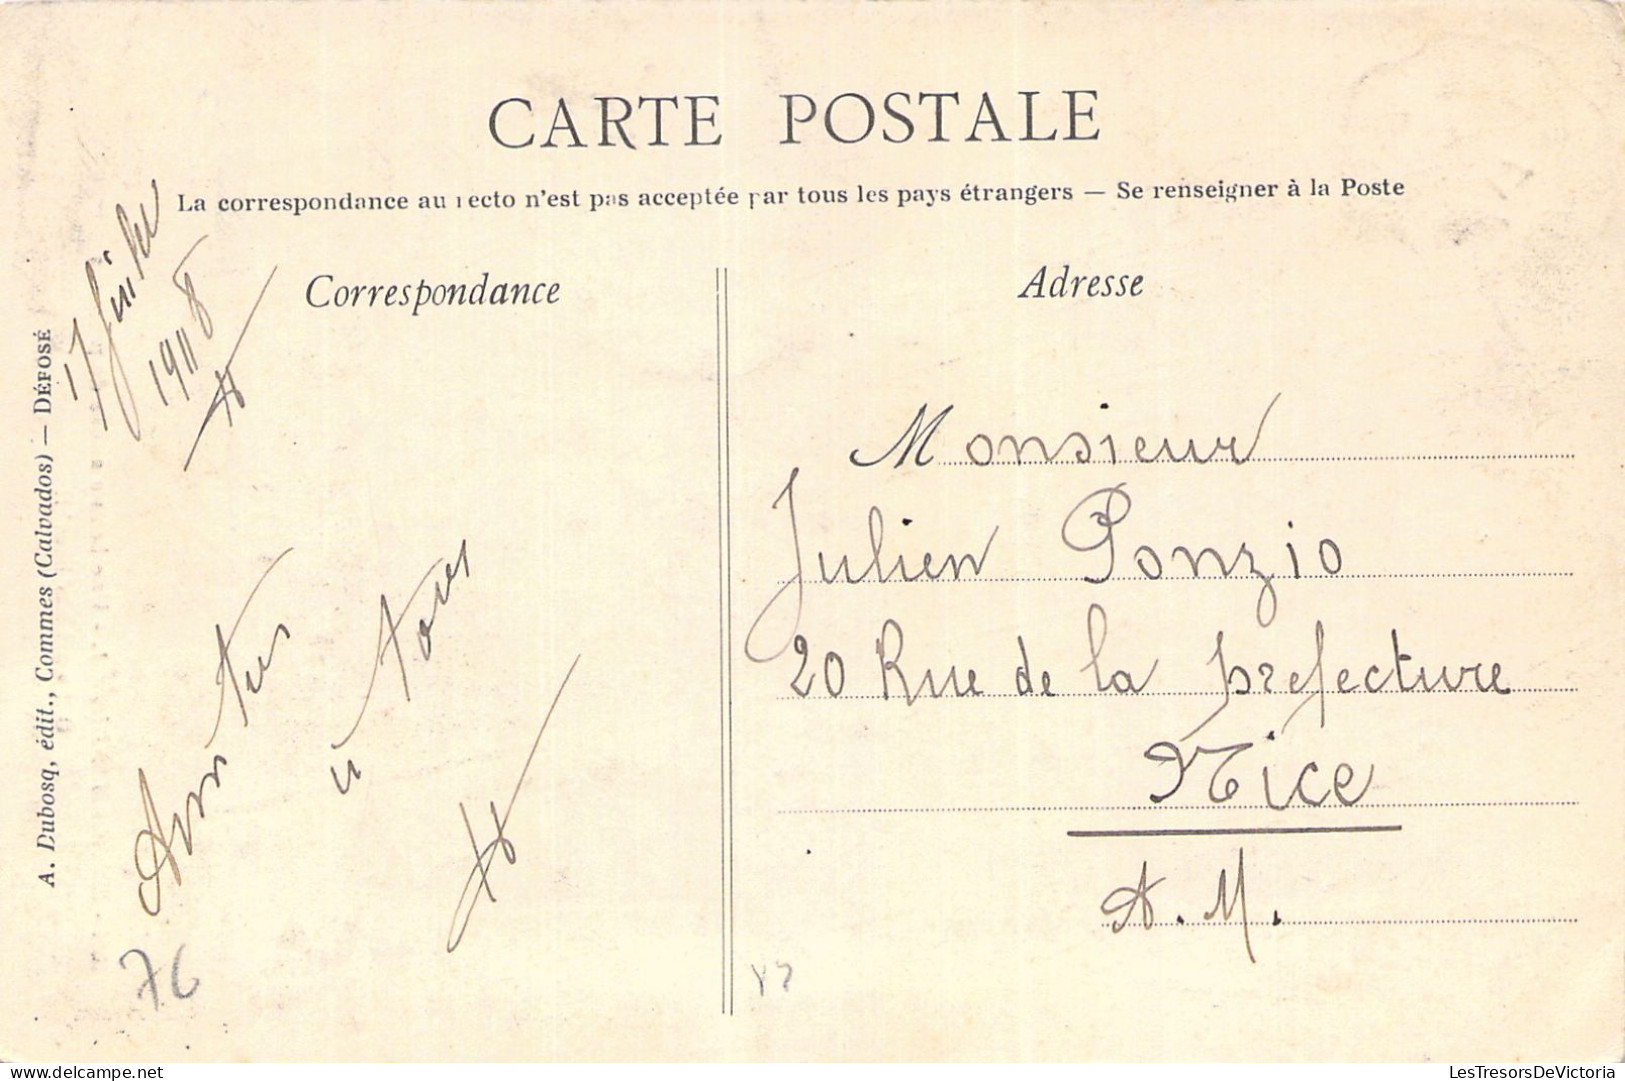 CARTE POSTALE
La correspondance au recto n'est pas acceptée par tous les pays étrangers — Se renseigner à la Poste
Correspondance
Adresse
A. Dubosq, édit., Commes (Calvados) — DÉPOSÉ
17 Juillet
Monsieur
Julien Ponzio
20 Rue de la prefecture
Nice
A. M.
76
LesTresorsDeVictoria